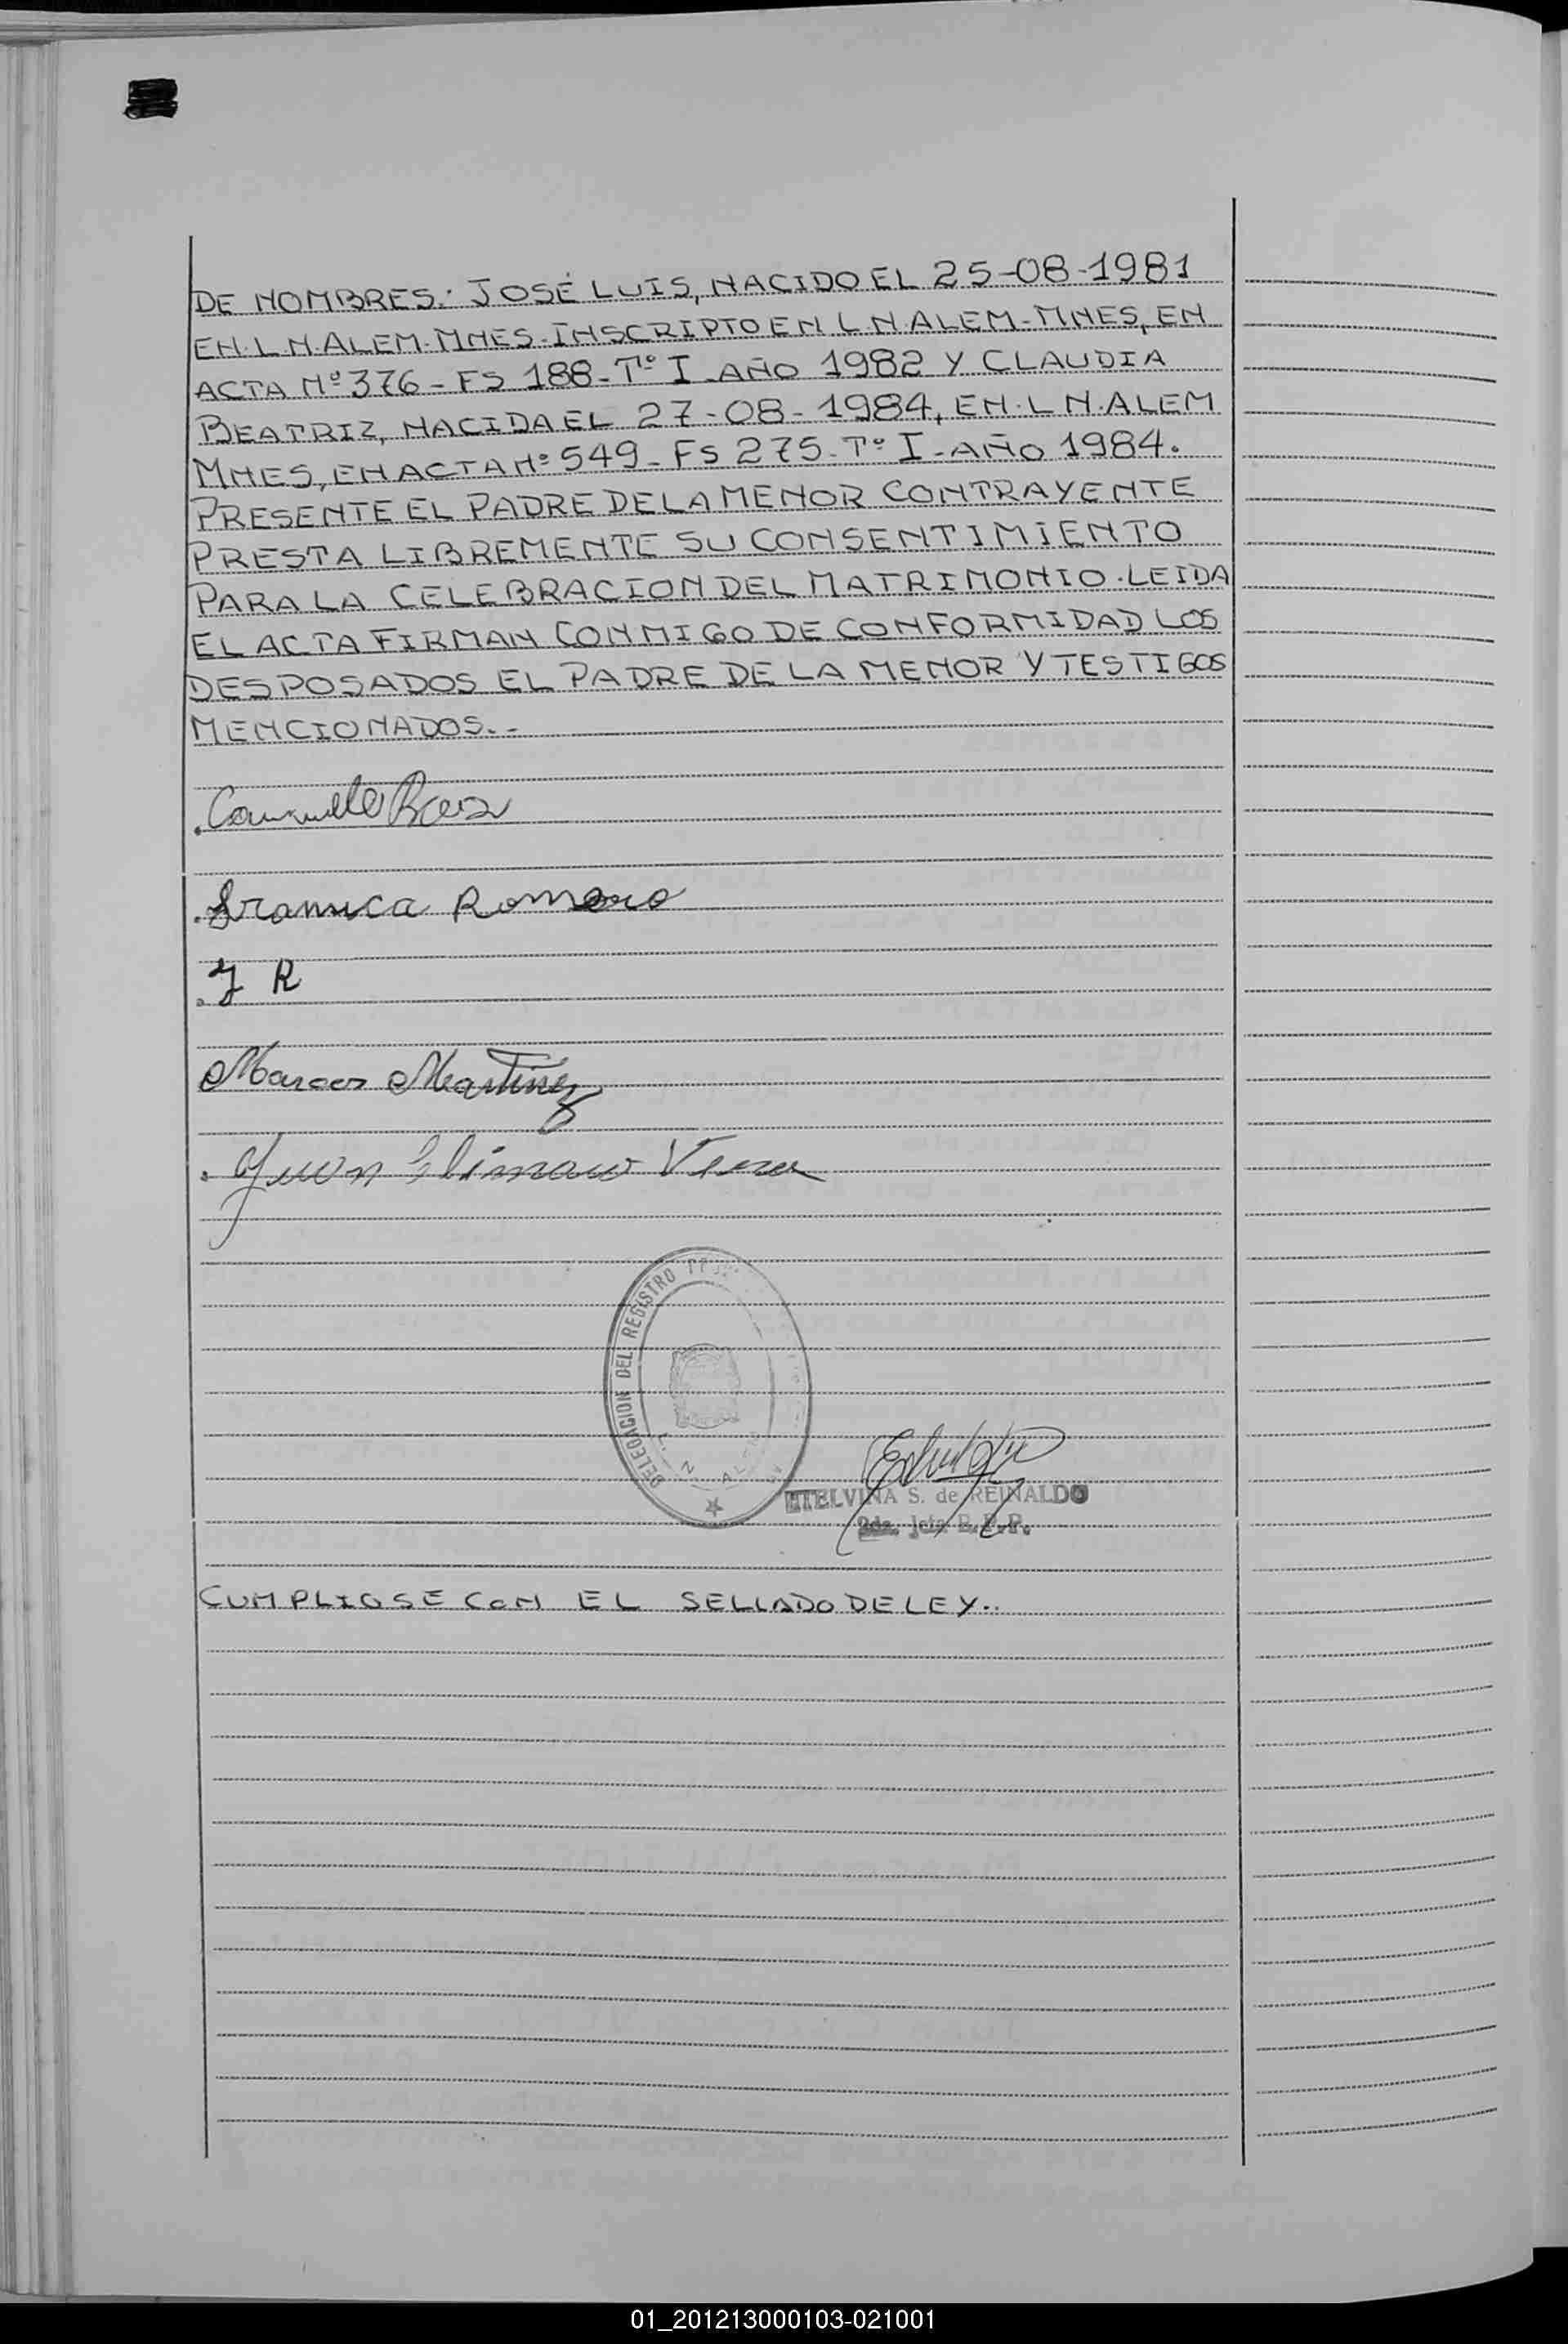 DE NOMBRES: JOSÉ LUIS, NACIDO EL 25-08-1981
EN L.N.ALEM-MNES-INSCRIPTO EN L.N.ALEM-MNES, EN
ACTA Nº 376 - FS 188 - Tº I - AÑO 1982 Y CLAUDIA
BEATRIZ, NACIDA EL 27-08-1984, EN L N.ALEM
MNES, EN ACTA Nº 549 - FS 275 - Tº I - AÑO 1984.
PRESENTE EL PADRE DE LA MENOR CONTRAYENTE
PRESTA LIBREMENTE SU CONSENTIMIENTO
PARA LA CELEBRACION DEL MATRIMONIO. LEIDA
EL ACTA FIRMAN CONMIGO DE CONFORMIDAD LOS
DESPOSADOS EL PADRE DE LA MENOR Y TESTIGOS
MENCIONADOS.-
Romero
J R
Marcos Martinez
Juan Vera
DELEGACION DEL REGISTRO
ETELVINA S. de REINALDO
CUMPLIOSE CON EL SELLADO DE LEY..
01_201213000103-021001